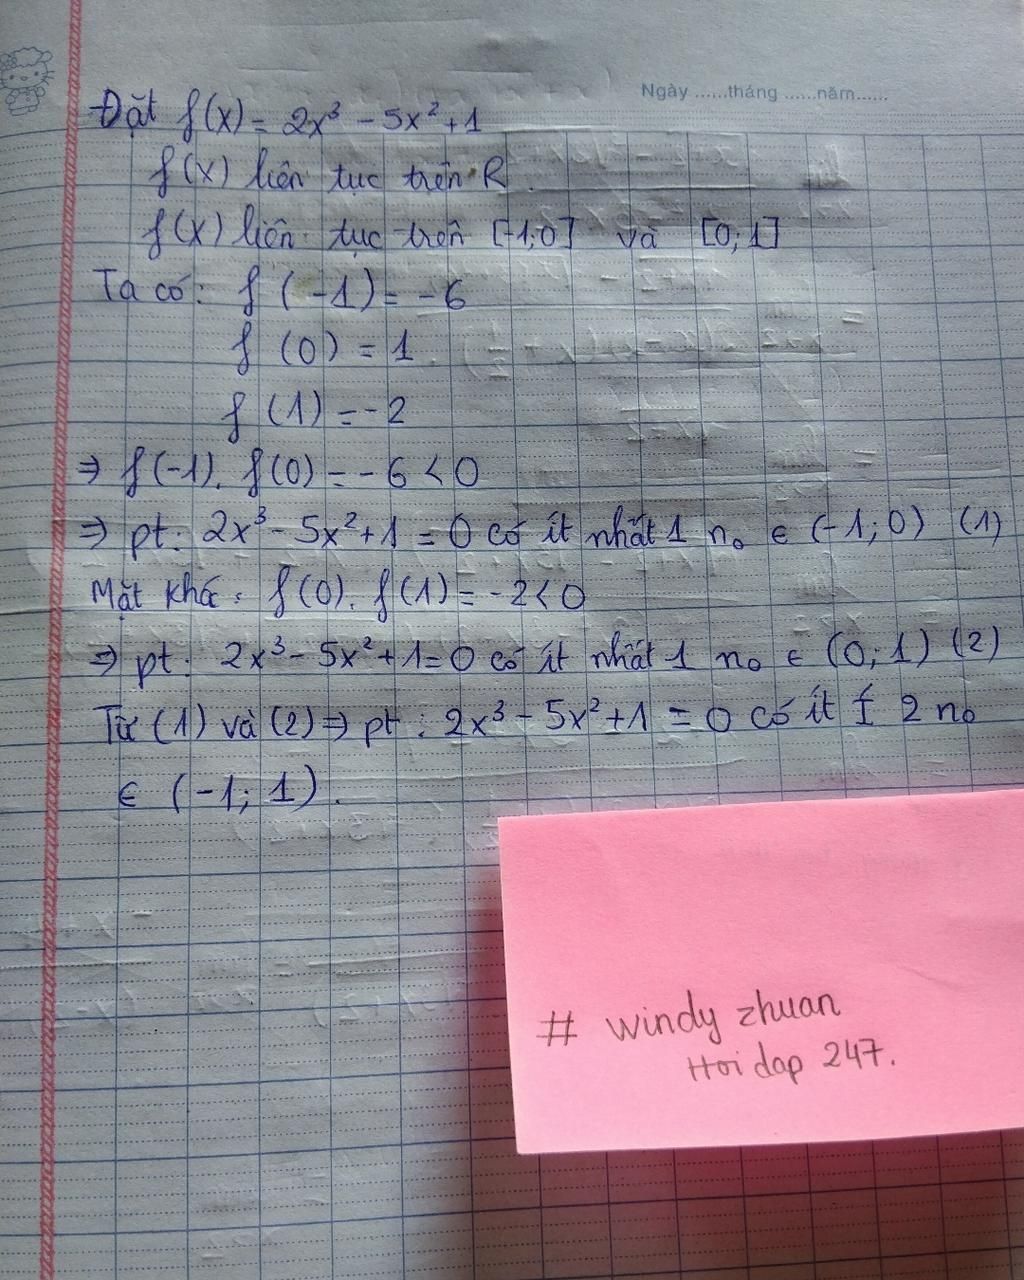 Ngày ......tháng ......năm......
Đặt f(x) = 2x³ - 5x² + 1
f(x) liên tục trên R.
f(x) liên tục trên [-1;0] và [0;1]
Ta có: f(-1) = -6
f(0) = 1
f(1) = -2
⇒ f(-1). f(0) = -6 < 0
⇒ pt: 2x³ - 5x² + 1 = 0 có ít nhất 1 n₀ ∈ (-1;0) (1)
Mặt khá: f(0). f(1) = -2 < 0
⇒ pt: 2x³ - 5x² + 1 = 0 có ít nhất 1 n₀ ∈ (0;1) (2)
Từ (1) và (2) ⇒ pt: 2x³ - 5x² + 1 = 0 có ít 2 n₀
∈ (-1; 1).
# windy zhuan
Hoi dap 247.